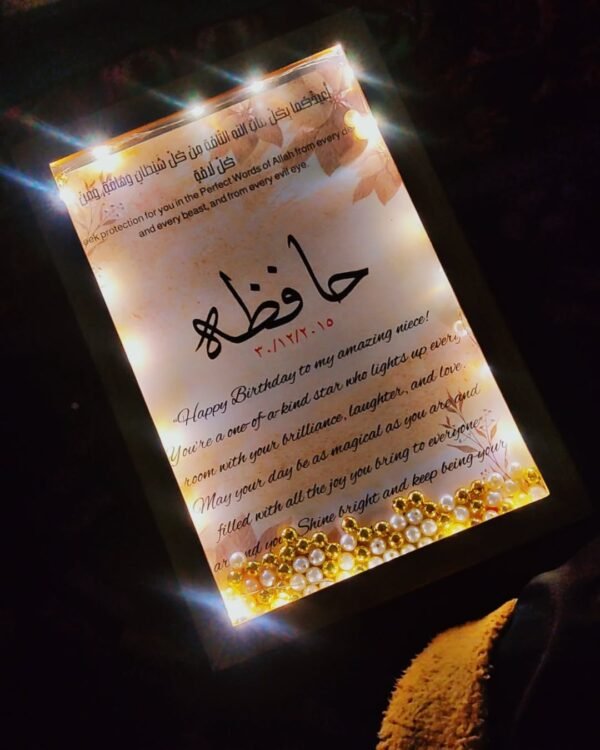 أعيذكما بكلمات الله التامة من كل شيطان وهامة، ومن
كل لامة
protection for you in the Perfect Words of Allah from every
and every beast, and from every evil eye.
حافظه
٣٠/١٢/٢٠١٥
-Happy Birthday to my amazing niece!
You're a one-of-a-kind star who lights up every
room with your brilliance, laughter, and love.
May your day be as magical as you are and
filled with all the joy you bring to everyone
around you. Shine bright and keep being your